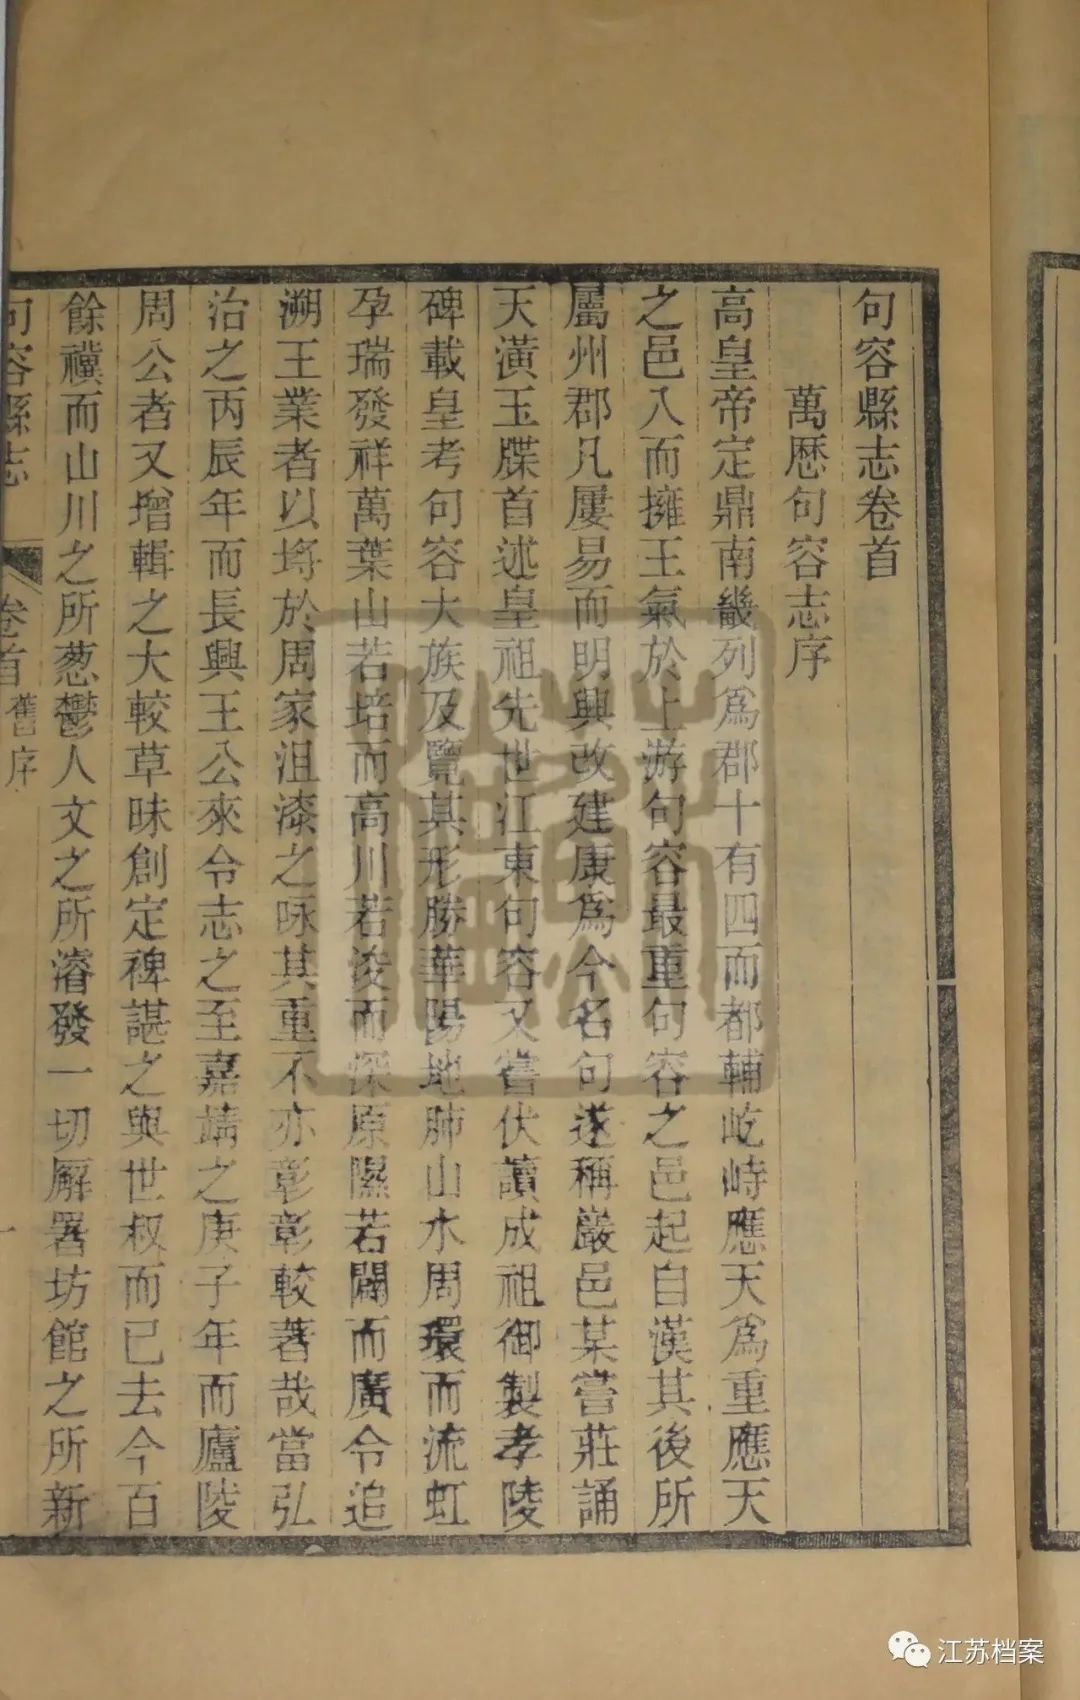 句容縣志卷首
萬歷句容志序
高皇帝定鼎南畿列爲郡十有四而都輔屹峙應天爲重應天
之邑八而擁王氣於上游句容最重句容之邑起自漢其後所
屬州郡凡屢易而明興改建康爲今名句遂稱嚴邑某嘗莊誦
天潢玉牒首述皇祖先世江東句容又嘗伏讀成祖御製孝陵
碑載皇考句容大族及覽其形勝華陽地肺山水周環而流虹
孕瑞發祥萬葉山若培而高川若浚而深原隰若闢而廣令追
溯王業者以埒於周家沮漆之咏其重不亦彰彰較著哉當弘
治之丙辰年而長興王公來令志之至嘉靖之庚子年而廬陵
周公者又增輯之大較草昧創定裨諶之與世叔而已去今百
餘禩而山川之所葱鬱人文之所濬發一切廨署坊館之所新
句容縣志
卷首
舊序
一
江苏档案